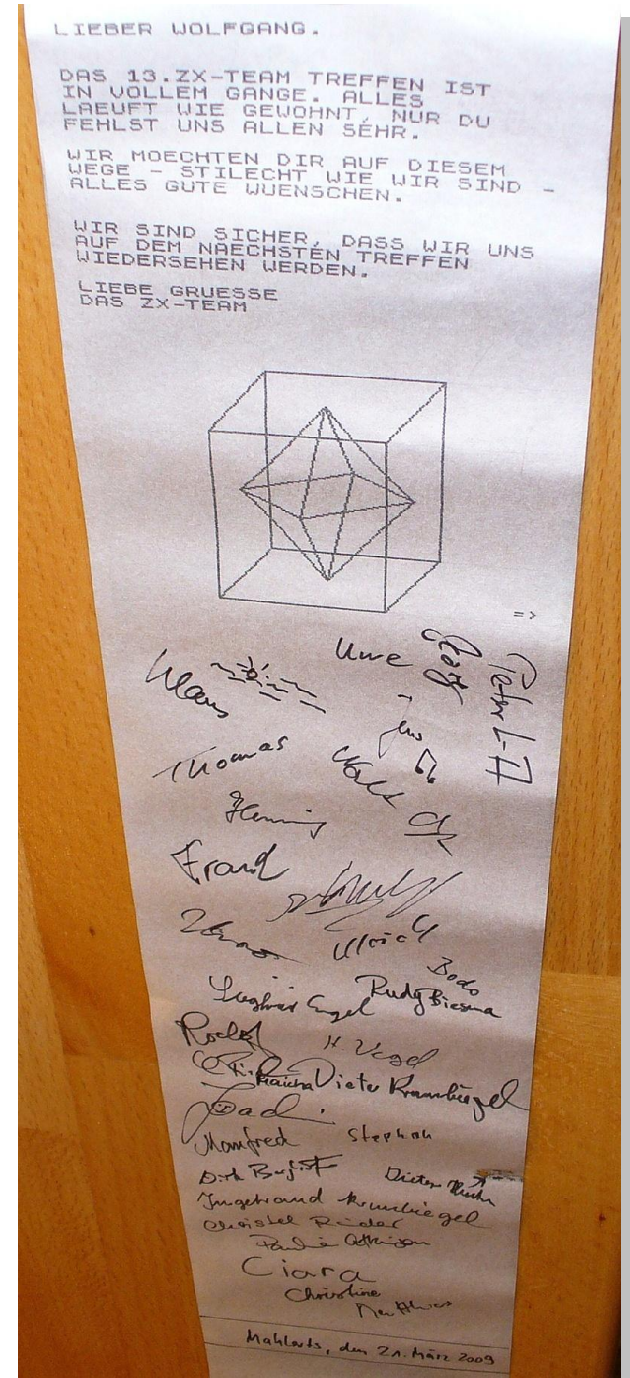 LIEBER WOLFGANG.
DAS 13.ZX-TEAM TREFFEN IST
IN VOLLEM GANGE. ALLES
LAEUFT WIE GEWOHNT, NUR DU
FEHLST UNS ALLEN SEHR.
WIR MOECHTEN DIR AUF DIESEM
WEGE - STILECHT WIE WIR SIND -
ALLES GUTE WUENSCHEN.
WIR SIND SICHER, DASS WIR UNS
AUF DEM NAECHSTEN TREFFEN
WIEDERSEHEN WERDEN.
LIEBE GRUESSE
DAS ZX-TEAM
=>
Uwe
Klaus
Thomas
Henning
Frank
Ulrich
Bodo
Siegfried Engel
Rudy Biesma
H. Vogel
Dieter Krumbiegel
Joachi
Manfred
Stephan
Dirk
Dieter
Ingetraud Krumbiegel
Christel
Ciara
Christine
Matthias
Mahlerts, den 21. März 2009